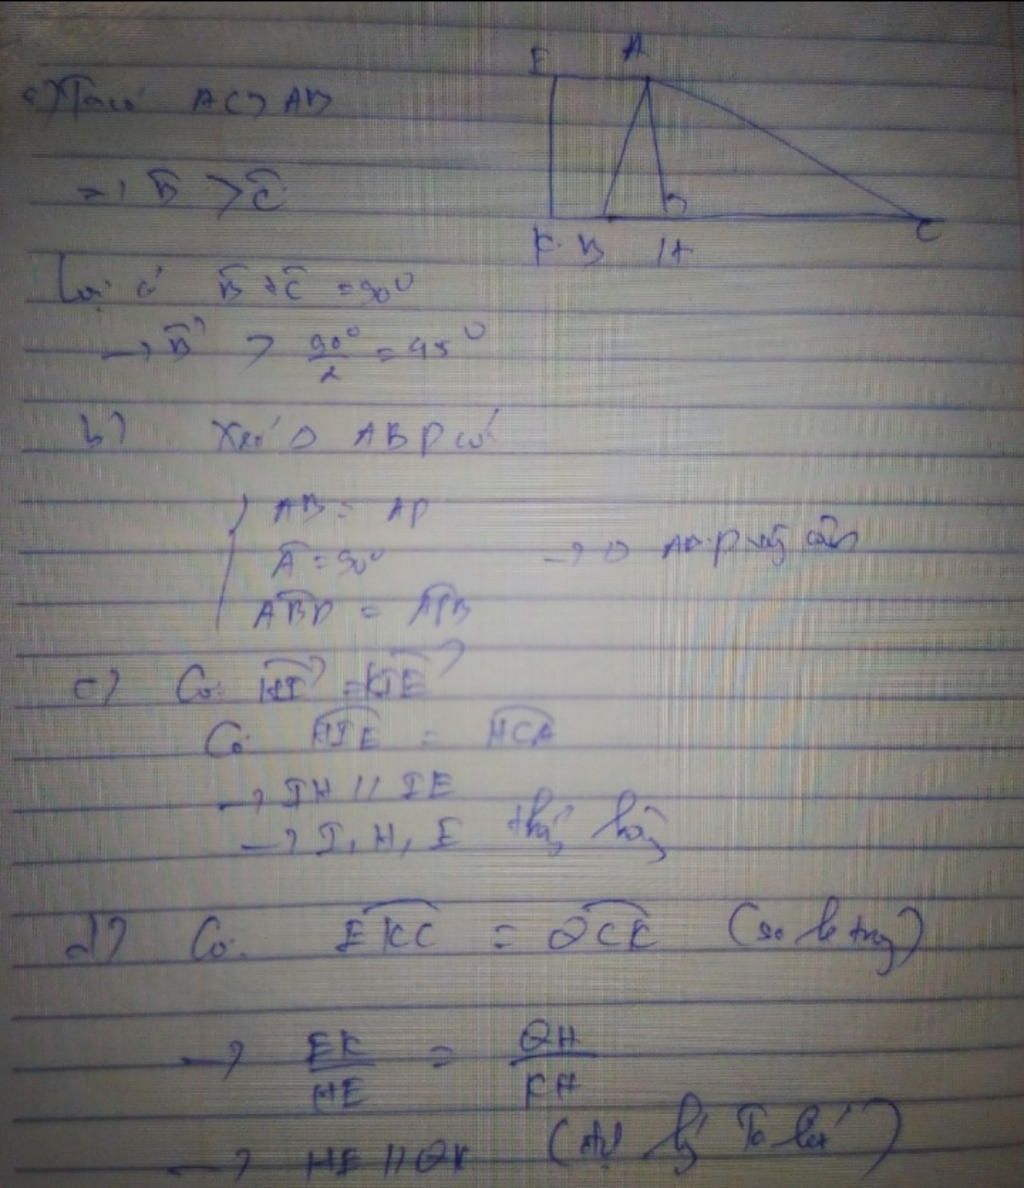 E A
a) Ta có AC > AB
=> B̂ > Ĉ
K B H C
Lại có B̂ + Ĉ = 90°
→ B̂ > 90°/2 = 45°
b) Xét Δ ABP có
AB = AP
Â = 90°
→ Δ ABP vg cân
ABP = APB
c) Có
Có HIE = HCA
→ IH // IE
→ I, H, E thẳng hàng
d) Có EKC = QCK (so le trong)
→ EK/HE = QH/KH
→ HE // QK (Định lý Ta lét)